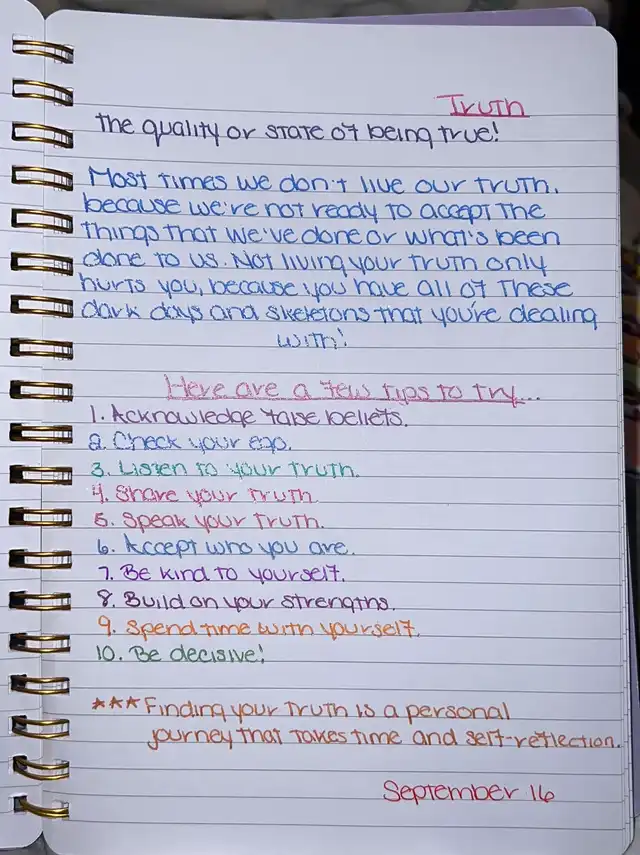 Truth
The quality or state of being true!
Most times we don't live our truth,
because we're not ready to accept the
things that we've done or what's been
done to us. Not living your truth only
hurts you, because you have all of these
dark days and skeletons that you're dealing
with!
Here are a few tips to try...
1. Acknowledge false beliefs.
2. Check your ego.
3. Listen to your truth.
4. Share your truth.
5. Speak your truth.
6. Accept who you are.
7. Be kind to yourself.
8. Build on your strengths.
9. Spend time with yourself.
10. Be decisive!
***Finding your truth is a personal
journey that takes time and self-reflection.
September 16